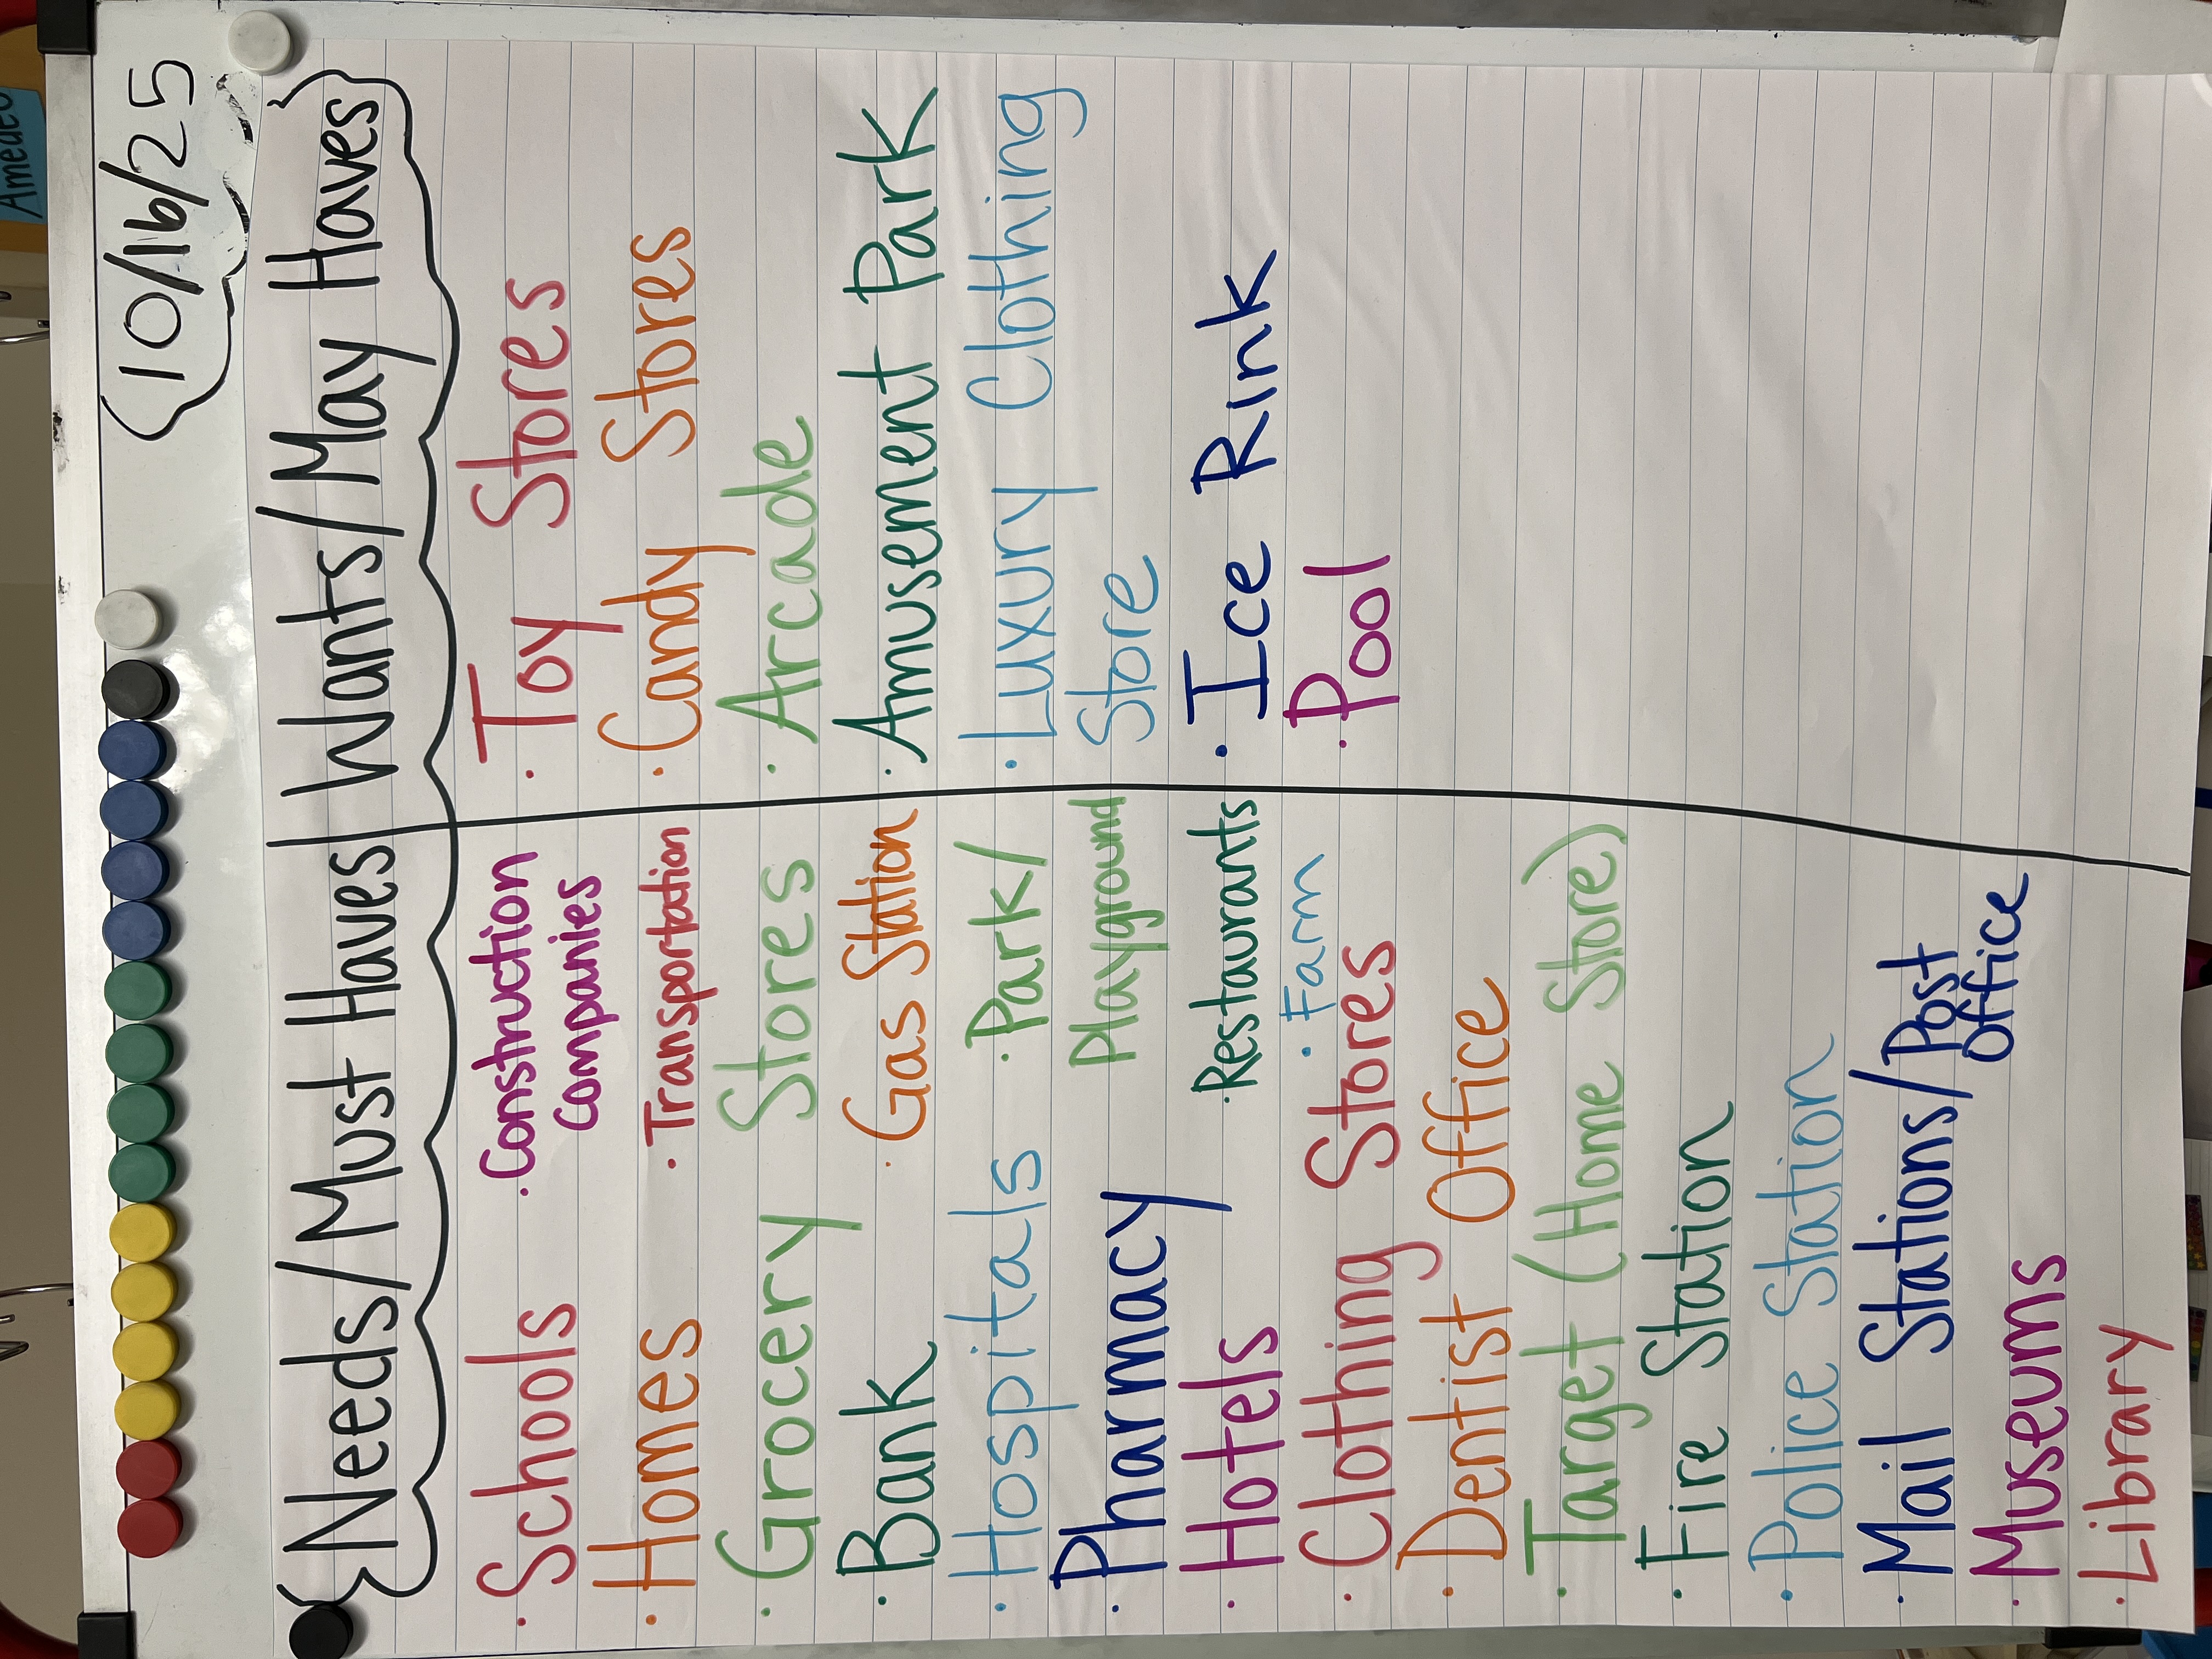 Amedeo
10/16/25
Needs/Must Haves | Wants/May Haves
• Schools
• Homes
• Grocery Stores
• Bank
• Hospitals
• Pharmacy
• Hotels
• Clothing Stores
• Dentist Office
• Target (Home Store)
• Fire Station
• Police Station
• Mail Stations/Post
Office
• Museums
• Library
• Construction
Companies
• Transportation
• Gas Station
• Park/
Playground
• Restaurants
• Farm
• Toy Stores
• Candy Stores
• Arcade
• Amusement Park
• Luxury Clothing
Store
• Ice Rink
• Pool